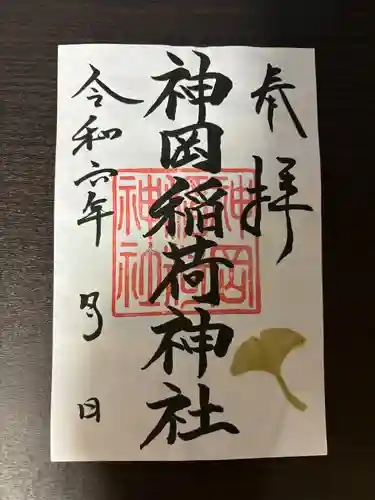 奉拝
神岡稲荷神社
神岡稲荷神社
令和六年 月 日